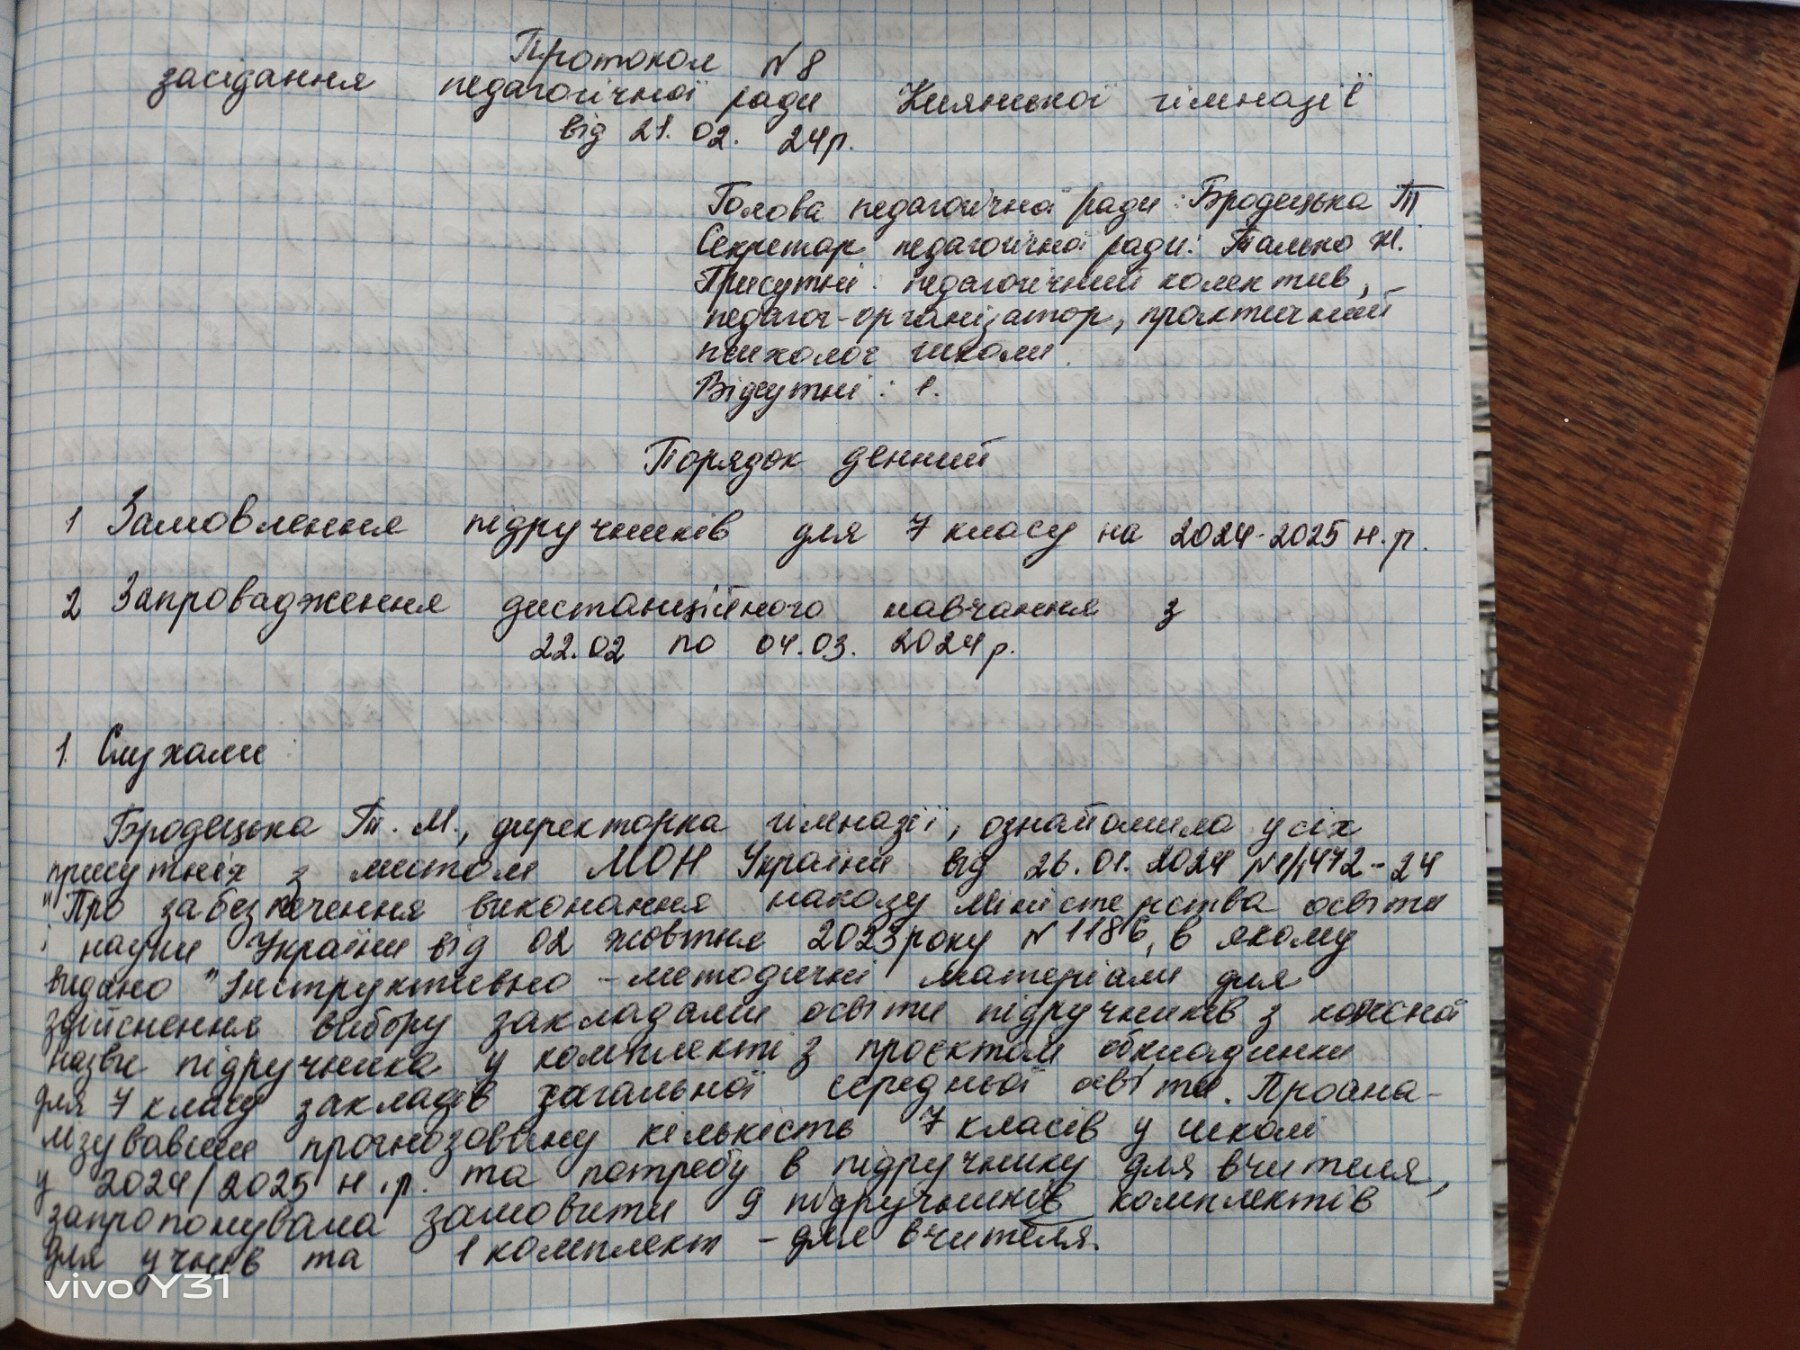 Протокол №8
засідання педагогічної ради Киянської гімназії
від 21.02. 24р.
Голова педагогічної ради: Бродецька Т
Секретар педагогічної ради: Талько Н.
Присутні: педагогічний колектив,
педагог-організатор, практичний
психолог школи.
Відсутні: 1.
Порядок денний
1 Замовлення підручників для 7 класу на 2024-2025 н.р.
2 Запровадження дистанційного навчання з
22.02 по 04.03. 2024р.
1. Слухали:
Бродецька Т. М., директорка гімназії, ознайомила усіх
присутніх з листом МОН України від 26.01.2024 №1/1472-24
"Про забезпечення виконання наказу Міністерства освіти
і науки України від 02 жовтня 2023 року №1186, в якому
видано "Інструктивно-методичні матеріали для
здійснення вибору закладами освіти підручників з кожної
назви підручника у комплекті з проєктом обкладинки
для 7 класу закладів загальної середньої освіти. Проана-
лізувавши прогнозовану кількість 7 класів у школі
у 2024/2025 н.р. та потребу в підручнику для вчителя,
запропонувала замовити 9 підручників комплектів
для учнів та 1 комплект - для вчителя.
vivo Y31